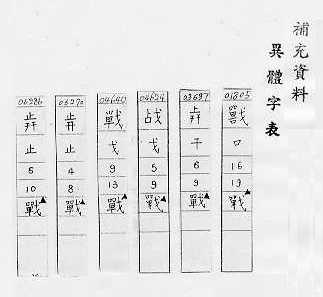 補充資料
異體字表
01805
口
16
19
戰▲
03697
干
6
9
戰▲
04624
战
戈
5
9
戰▲
04640
戦
戈
9
13
戰▲
06270
止
4
8
戰▲
06286
止
5
10
戰▲